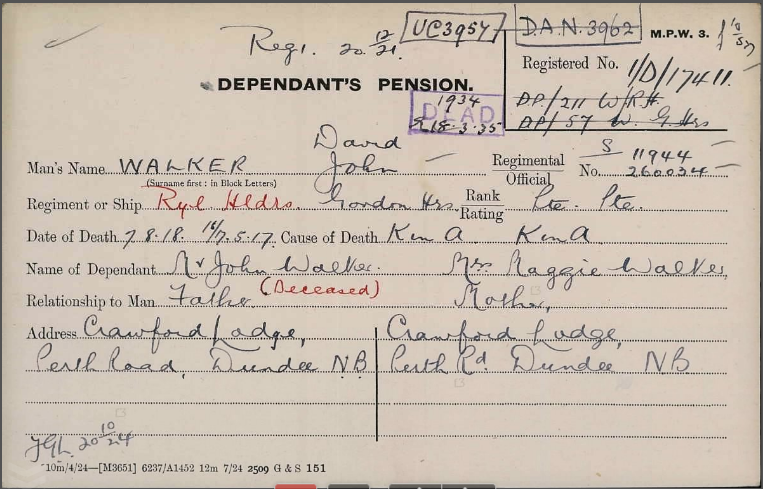 Regr. 20 12/21. UC3957 D.A.N. 3962 M.P.W. 3.
Registered No. 1/D/17411.
DEPENDANT'S PENSION. DP/211 W/RH
1934 DP/57 W. G. Hrs
DEAD
18.3.35
David S 11944
Man's Name WALKER John Regimental Official No. 260034
(Surname first: in Block Letters)
Regiment or Ship Ryl Hldrs. Gordon Hrs. Rank Rating Pte. Pte.
Date of Death 7.8.18. 16/7.5.17. Cause of Death K in A K in A
Name of Dependant Mr John Walker. Mrs Maggie Walker,
Relationship to Man Father (Deceased) Mother,
Address Crawford Lodge, Crawford Lodge,
Perth Road, Dundee N.B. Perth Rd. Dundee NB
20 10/24
10m/4/24—[M3651] 6237/A1452 12m 7/24 2509 G & S 151